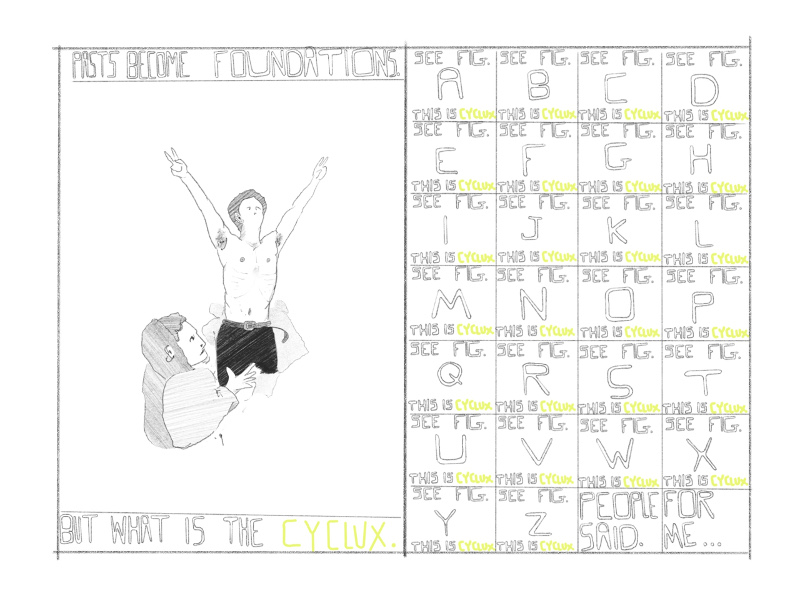 PASTS BECOME FOUNDATIONS.
BUT WHAT IS THE CYCLUX.
SEE FIG.
A
THIS IS CYCLUX
SEE FIG.
B
THIS IS CYCLUX
SEE FIG.
C
THIS IS CYCLUX
SEE FIG.
D
THIS IS CYCLUX
SEE FIG.
E
THIS IS CYCLUX
SEE FIG.
F
THIS IS CYCLUX
SEE FIG.
G
THIS IS CYCLUX
SEE FIG.
H
THIS IS CYCLUX
SEE FIG.
I
THIS IS CYCLUX
SEE FIG.
J
THIS IS CYCLUX
SEE FIG.
K
THIS IS CYCLUX
SEE FIG.
L
THIS IS CYCLUX
SEE FIG.
M
THIS IS CYCLUX
SEE FIG.
N
THIS IS CYCLUX
SEE FIG.
O
THIS IS CYCLUX
SEE FIG.
P
THIS IS CYCLUX
SEE FIG.
Q
THIS IS CYCLUX
SEE FIG.
R
THIS IS CYCLUX
SEE FIG.
S
THIS IS CYCLUX
SEE FIG.
T
THIS IS CYCLUX
SEE FIG.
U
THIS IS CYCLUX
SEE FIG.
V
THIS IS CYCLUX
SEE FIG.
W
THIS IS CYCLUX
SEE FIG.
X
THIS IS CYCLUX
SEE FIG.
Y
THIS IS CYCLUX
SEE FIG.
Z
THIS IS CYCLUX
PEOPLE
SAID.
FOR
ME...